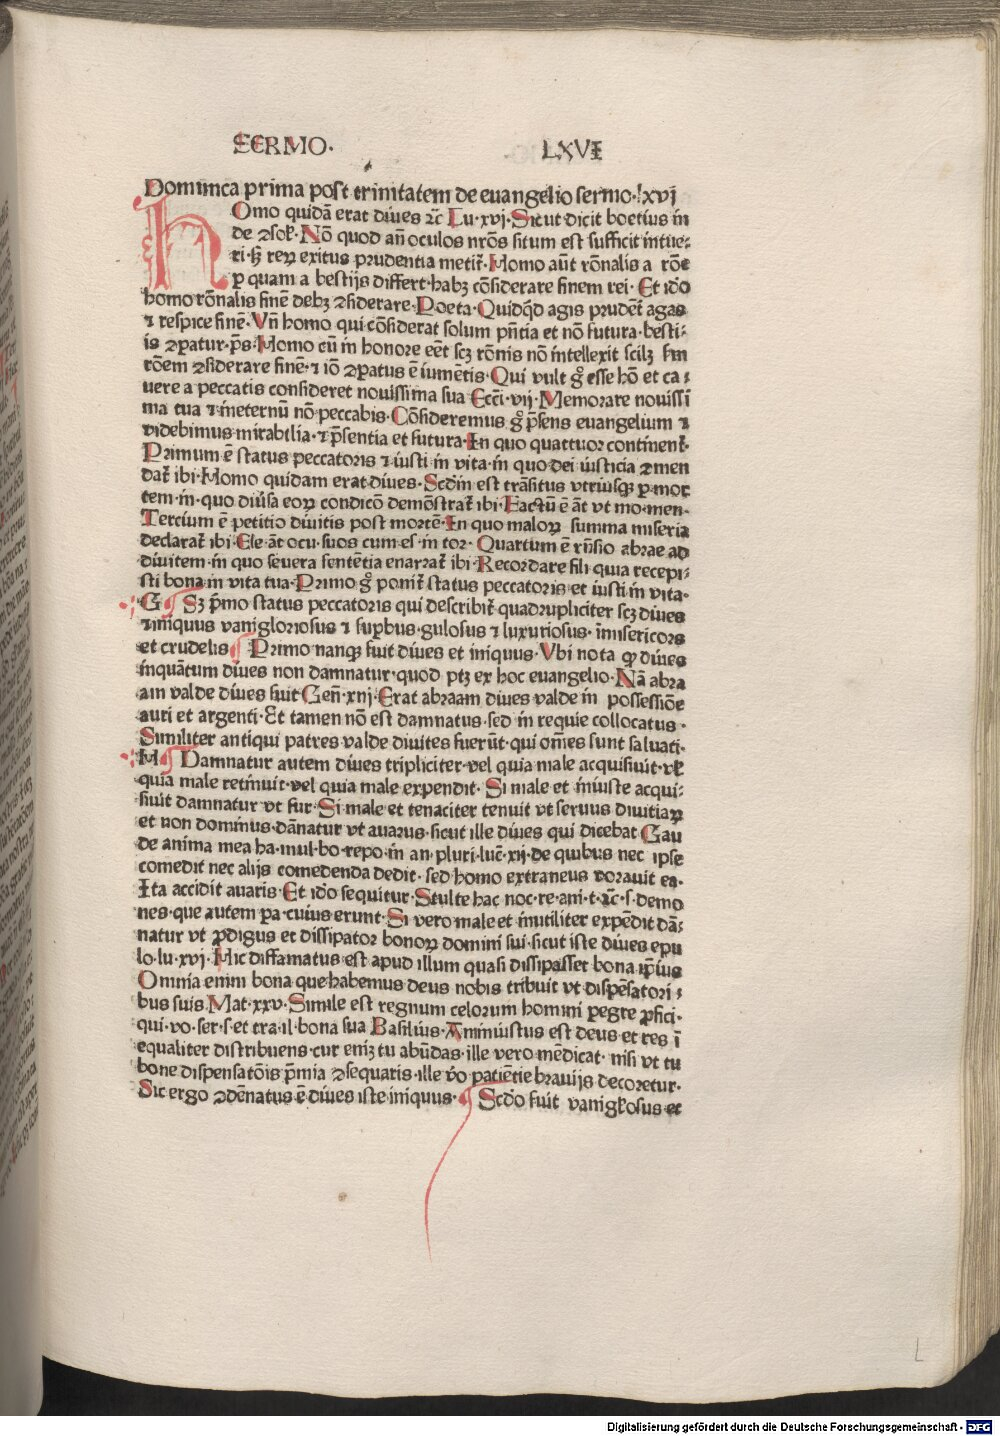 SERMO· LXVI
Dominica prima post trinitatem de euangelio sermo·lxvj
HOmo quidã erat diues ⁊c̃ Lu·xvj·Sicut dicit boetius in
de ꝯsol·Nõ quod añ oculos nr̃os situm est sufficit intue-
ri·sꝫ reꝝ exitus prudentia metit̃·Homo aũt rõnalis a rõe
ꝑ quam a bestijs differt·habꝫ cõsiderare finem rei·Et ido
homo rõnalis finẽ debꝫ ꝯsiderare·Poeta·Quidq̃d agis prudẽt̃ agas
⁊ respice finẽ·Vñ homo qui cõsiderat solum pñtia et nõ futura·besti-
is ꝯparatur·p̃s·Homo cũ in honore eẽt scꝫ rõnis nõ intellexit scilꝫ fm
rõem ꝯsiderare finẽ·⁊ iõ ꝯparatus ẽ iumẽtis·Qui vult g̊ esse hõ et ca-
uere a peccatis consideret nouissima sua Ecc̃i·vij·Memorare nouissi
ma tua ⁊ ineternũ nõ peccabis·Cõsideremus g̊ p̃sens euangelium ⁊
videbimus mirabilia·⁊ p̃sentia et futura·In quo quattuor continent̃·
Primum ẽ status peccatoris ⁊ iusti in vita·in quo dei iusticia ꝯmen
dat̃ ibi·Homo quidam erat diues·Scdm̃ est trãsitus vtriusqꝫ ꝑ mor
tem·in·quo diũsa eoꝝ condicõ demõstrat̃ ibi·Factũ ẽ ãt vt mo·men·
Tercium ẽ petitio diuitis post mortẽ·In quo maloꝝ summa miseria
declarat̃ ibi·Ele ãt ocu·suos cum es·in tor·Quartum ẽ rñsio abrae ad
diuitem·in quo seuera sentẽtia enarrat̃ ibi·Recordare fili quia recepi-
sti bona in vita tua·Primo g̊ ponit̃ status peccatoris et iusti in vita·
G Sꝫ p̃mo status peccatoris qui describit̃ quadrupliciter scꝫ diues
⁊ iniquus vanigloriosus ⁊ suꝑbus·gulosus ⁊ luxuriosus·ĩmisericors
et crudelis Primo nanqꝫ fuit diues et iniquus·Vbi nota ꝙ diues
inquãtum diues non damnatur·quod ptꝫ ex hoc euangelio·Nã abra
am valde diues fuit Geñ·xiij·Erat abraam diues valde in possessiõe
auri et argenti·Et tamen nõ est damnatus·sed in requie collocatus·
Similiter antiqui patres valde diuites fuerũt·qui om̃es sunt saluati·
H Damnatur autem diues tripliciter·vel quia male acquisiuit·vł
quia male retinuit·vel quia male expendit·Si male et iniuste acqui-
siuit damnatur vt fur·Si male et tenaciter tenuit vt seruus diuitiaꝝ
et non dominus·dãnatur vt auarus·sicut ille diues qui dicebat Gau
de anima mea ha·mul·bo·repo·in an·pluri·luc̃·xij·de quibus nec ipse
comedit nec alijs comedenda dedit·sed homo extraneus vorauit ea·
Ita accidit auaris·Et ido sequitur·Stulte hac noc·re·ani·t·⁊c̃·s·demo
nes·que autem pa·cuius erunt·Si vero male et inutiliter expẽdit dã-
natur vt ꝓdigus et dissipator bonoꝝ domini sui·sicut iste diues epu
lo·lu·xvj·Hic diffamatus est apud illum quasi dissipasset bona ip̃ius
Omnia enim bona que habemus deus nobis tribuit vt dispẽsatori-
bus suis·Mat·xxv·Simile est regnum celorum homini ꝑegre ꝓfici·
qui·vo·ser·s·et tra·il·bona sua Basilius·An iniustus est deus et res ĩ
equaliter distribuens·cur enim tu abũdas·ille vero mẽdicat·nisi vt tu
bone dispensatõis p̃mia ꝯsequaris·ille vo̊ patiẽtie brauijs decoretur·
Sic ergo ꝯdẽnatus ẽ diues iste iniquus· Scdo fuit vanigłosus et
L
Digitalisierung gefördert durch die Deutsche Forschungsgemeinschaft - DFG